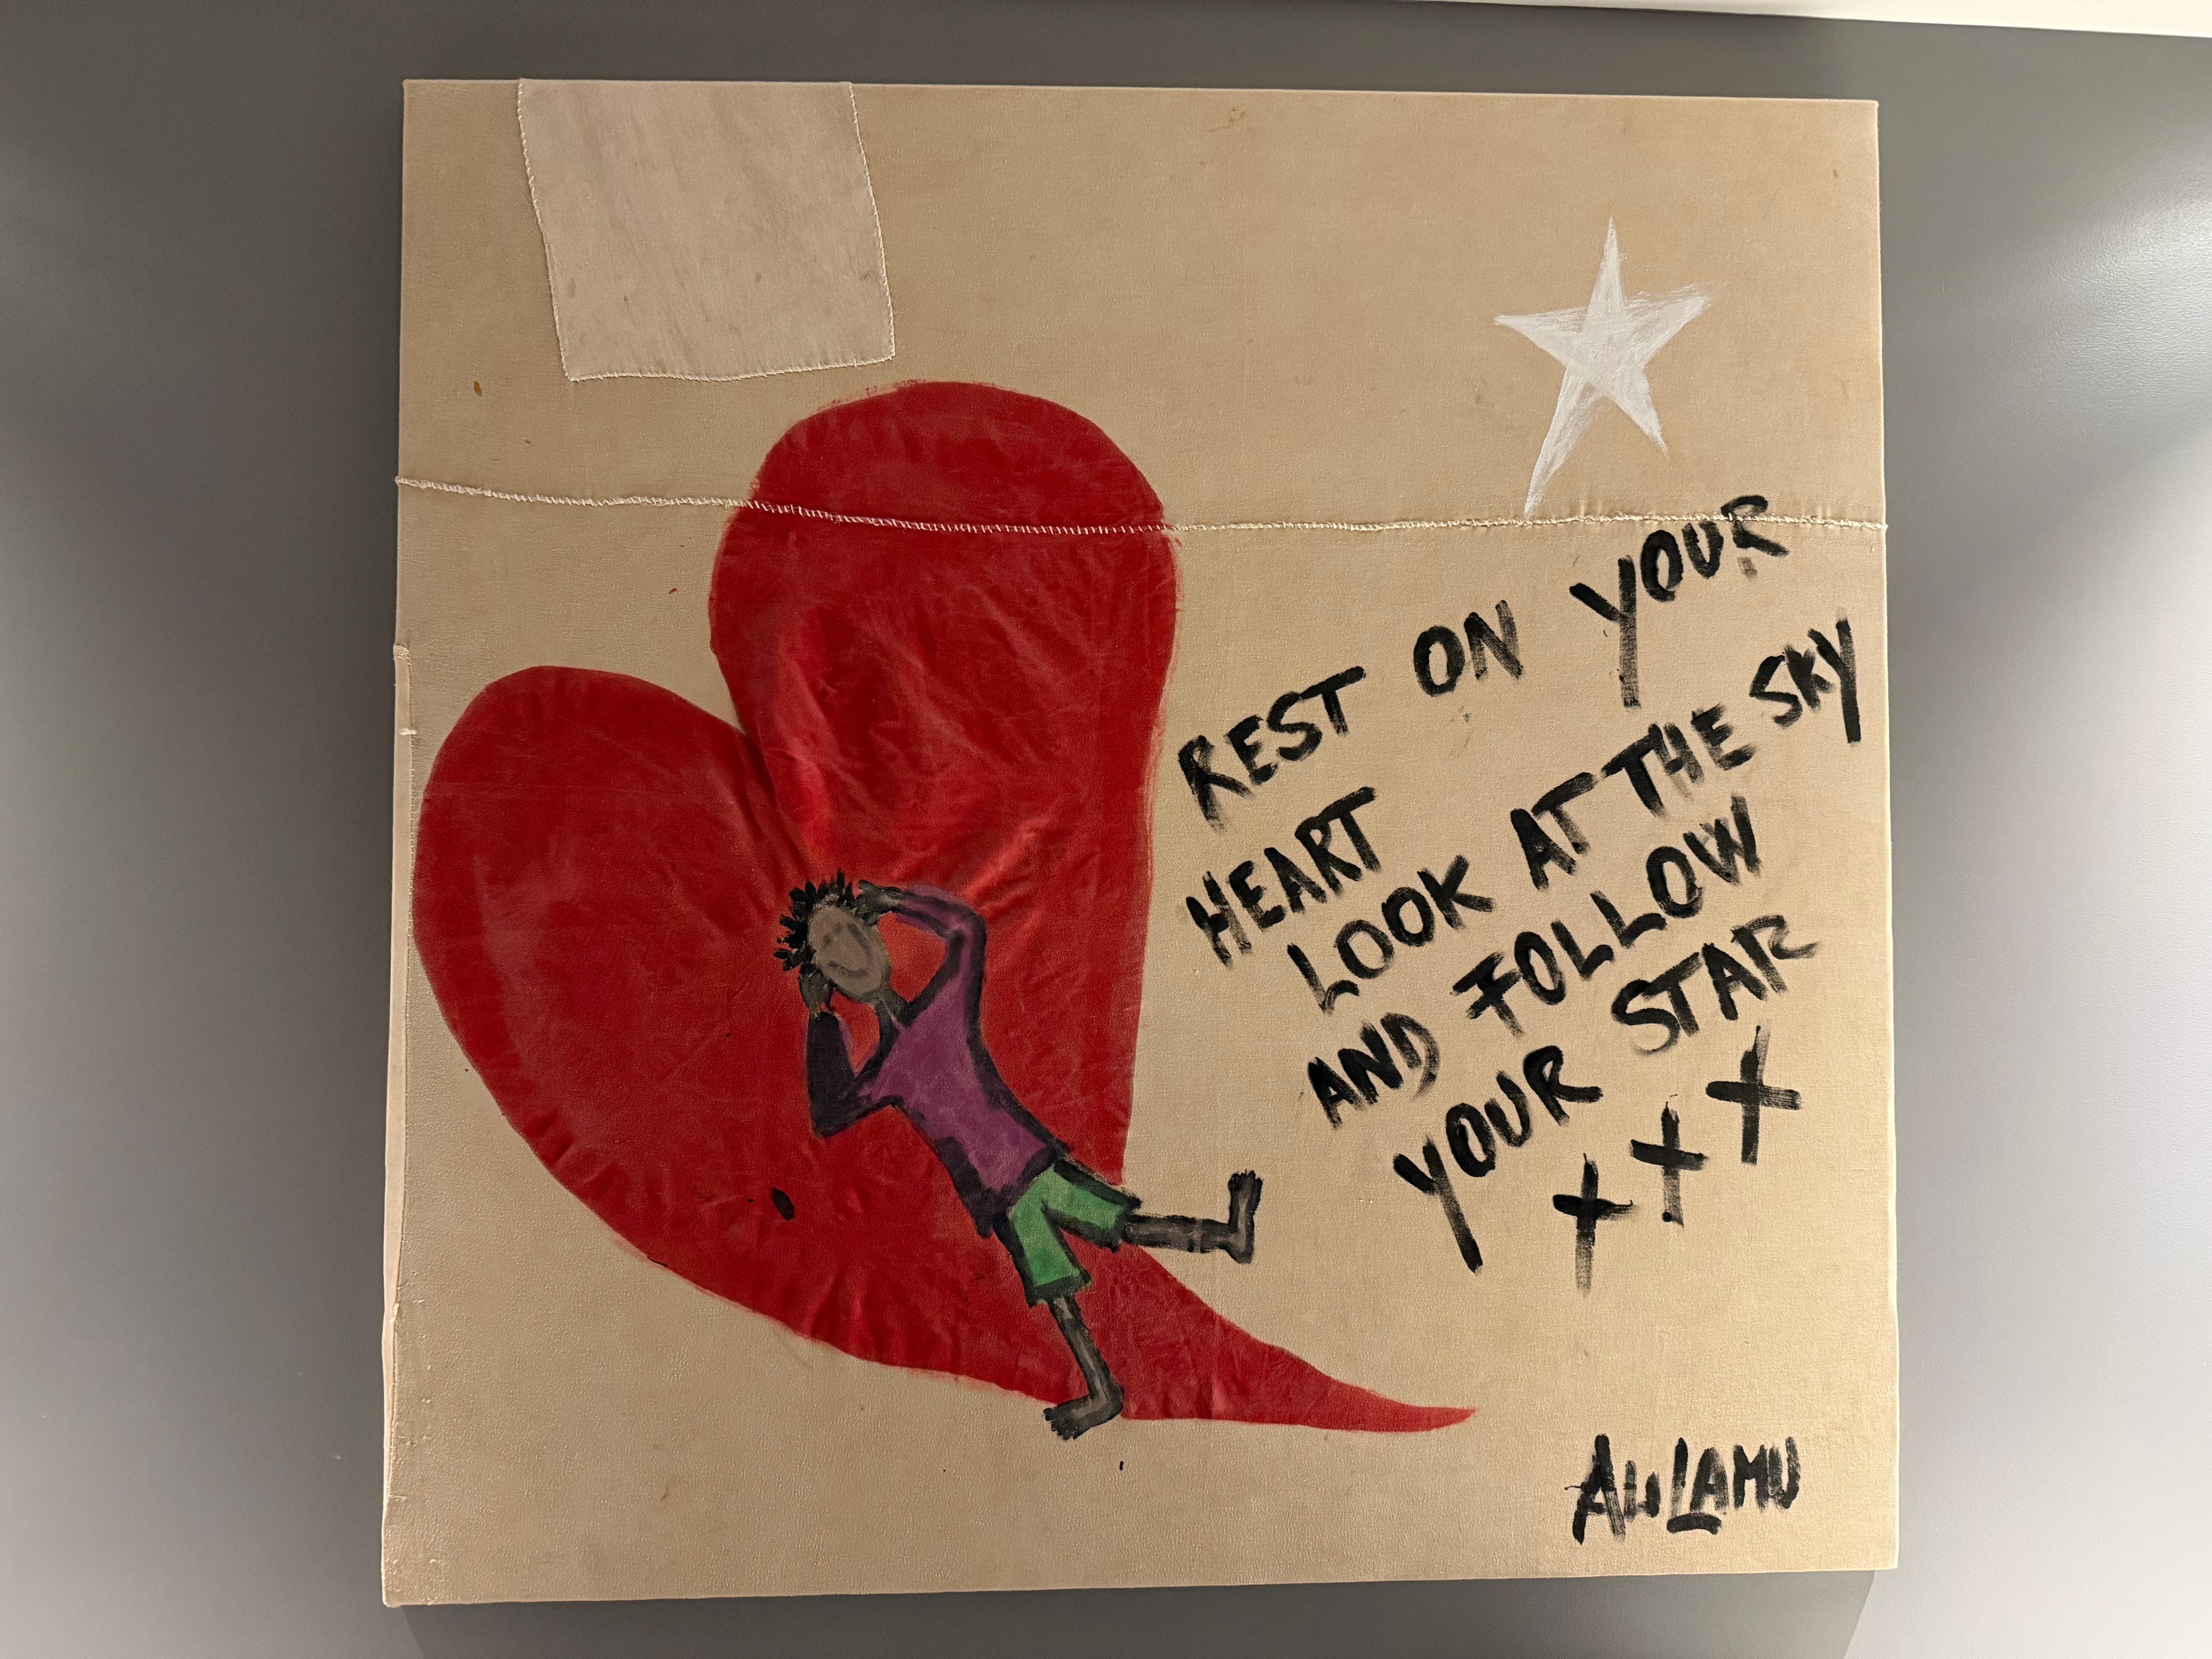 REST ON YOUR
HEART
LOOK AT THE SKY
AND FOLLOW
YOUR STAR
+++
ALILAMU